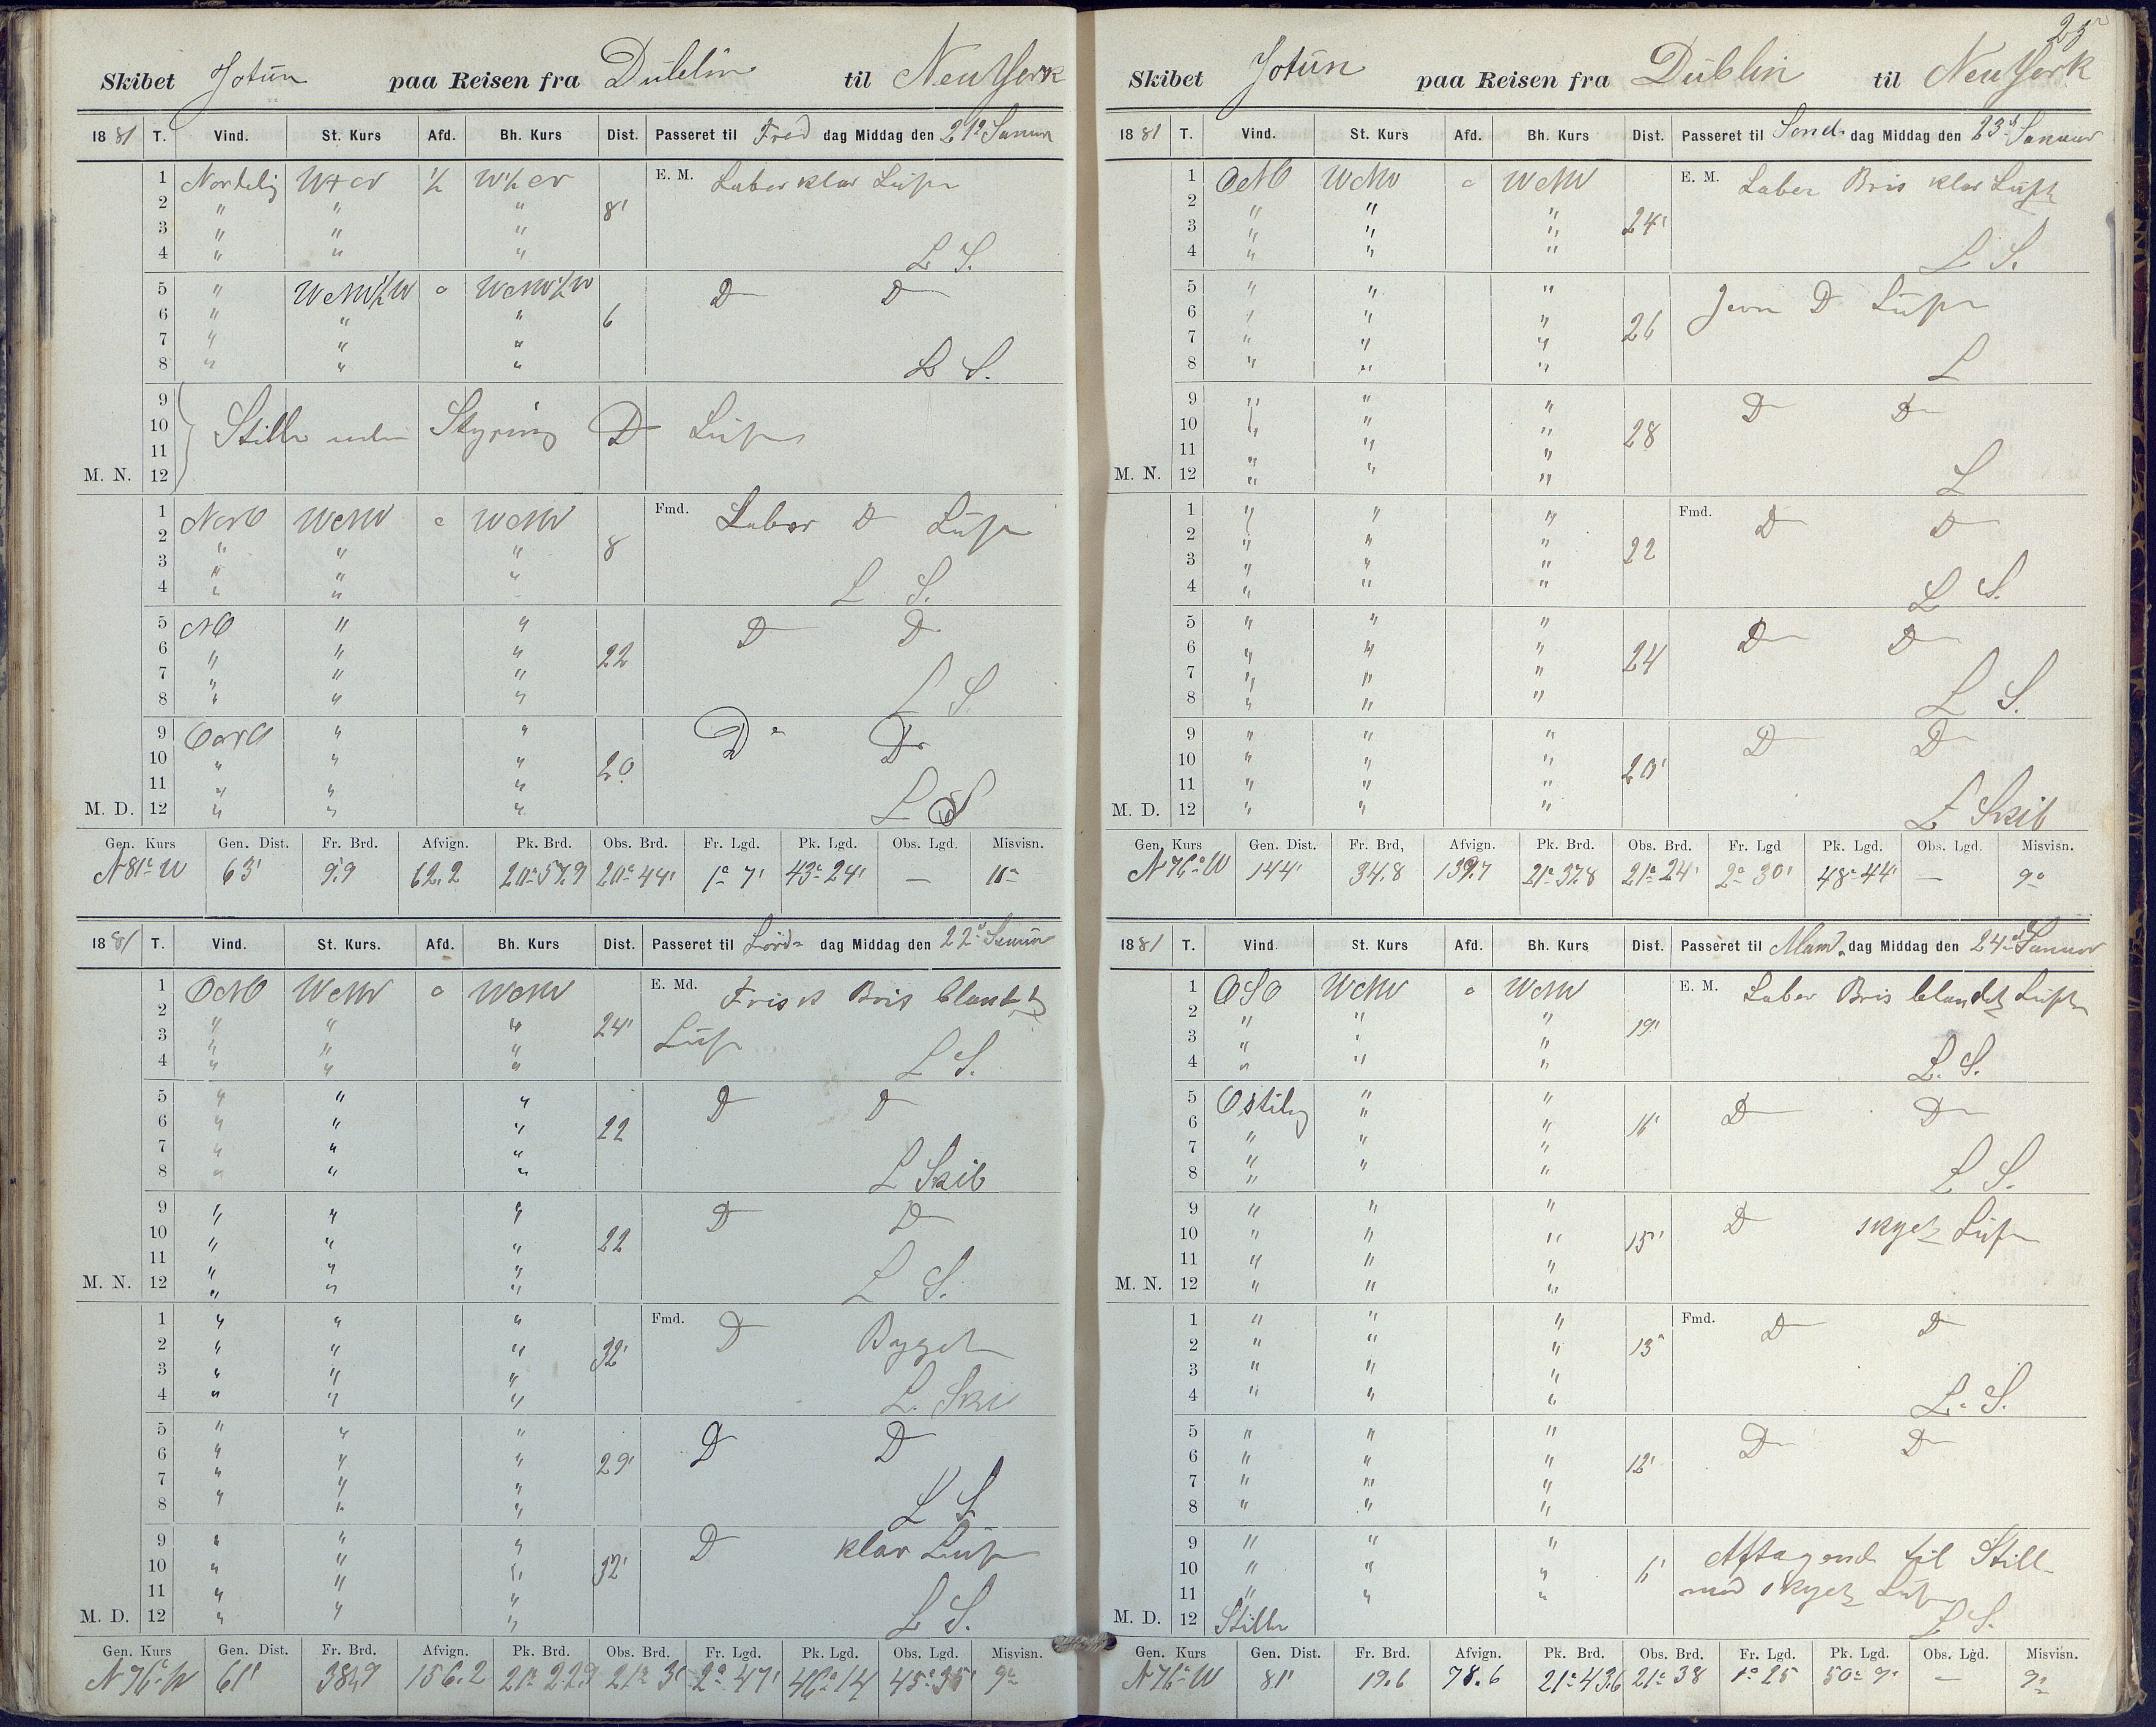 Skibet Jotun paa Reisen fra Dublin til New York
18 81 T. Vind. St. Kurs Afd. Bh. Kurs Dist. Passeret til Fred dag Middag den 21d Januar
1 Nordelig ½ E. M. Laber klar Luft
2 " " " 8'
3 " " "
4 " " " L S.
5 " WNW½W o WNW½W D D
6 " " " 6
7 " " "
8 " " " L S.
9
10 Stille uden Styring D Luft
11
M. N. 12
1 NNO WNW o WNW Fmd. Laber D Luft
2 " " " 8
3 " " "
4 " " " L S.
5 NO " " D D
6 " " " 22
7 " " "
8 " " " L S.
9 " " D D
10 " " " 20
11 " " "
M. D. 12 " " " L S
Gen. Kurs Gen. Dist. Fr. Brd. Afvign. Pk. Brd. Obs. Brd. Fr. Lgd. Pk. Lgd. Obs. Lgd. Misvisn.
N 81° W 63' 9.9 62.2 20° 57.9 20° 44' 1° 7' 43° 24' — 11°
18 81 T. Vind. St. Kurs. Afd. Bh. Kurs Dist. Passeret til Lörd dag Middag den 22d Januar
1 ONO WNW o WNW E. Md. Frisk Bris blandet
2 " " " 24' Luft
3 " " "
4 " " " L S.
5 " " " D D
6 " " " 22
7 " " "
8 " " " L Skib
9 " " " D D
10 " " " 22
11 " " "
M. N. 12 " " " L S.
1 " " " Fmd. D Byget
2 " " " 32'
3 " " "
4 " " " L. Ski
5 " " " D D
6 " " " 29'
7 " " "
8 " " " L S.
9 " " " D klar Luft
10 " " " 32'
11 " " "
M. D. 12 " " " L S.
Gen. Kurs Gen. Dist. Fr. Brd. Afvign. Pk. Brd. Obs. Brd. Fr. Lgd. Pk. Lgd. Obs. Lgd. Misvisn.
N 76° W 61' 156.2 21° 22.9 2° 47' 46° 14 45° 35' 9°
25
Skibet Jotun paa Reisen fra Dublin til New York
18 81 T. Vind. St. Kurs Afd. Bh. Kurs Dist. Passeret til Sönd. dag Middag den 23d Januar
1 ONO WNW o WNW E. M. Laber Bris klar Luft
2 " " " 24'
3 " " "
4 " " " L S.
5 " " " Jevn D Luft
6 " " " 26
7 " " "
8 " " " L
9 " " " D D
10 " " " 28
11 " " "
M. N. 12 " " " L
1 " " " Fmd. D D
2 " " " 22
3 " " "
4 " " " L S.
5 " " " D D
6 " " " 24
7 " " "
8 " " " L S.
9 " " " D D
10 " " " 20'
11 " " "
M. D. 12 " " " L Skib
Gen. Kurs Gen. Dist. Fr. Brd, Afvign. Pk. Brd. Obs. Brd. Fr. Lgd Pk. Lgd. Obs. Lgd. Misvisn.
N 76° W 144' 34.8 139.7 21° 37.8 21° 24' 2° 30' 48° 44' — 9°
18 81 T. Vind. St. Kurs Afd. Bh. Kurs Dist. Passeret til Mand. dag Middag den 24d Januar
1 OSO WNW o WNW E. M. Laber Bris blandet Luft
2 " " " 19'
3 " " "
4 " " " L. S.
5 Ostlig " " D D
6 " "
7 " " "
8 " " " L S.
9 " " " D skyet Luft
10 " " " 15'
11 " " "
M. N. 12 " " "
1 " " " Fmd. D D
2 " " " 13
3 " " "
4 " " " L. S.
5 " " " D D
6 " " " 12'
7 " " "
8 " " "
9 " " " Aftagende til Stille
10 " " " med skyet Luft
11 " " "
M. D. 12 Stille L S.
Gen. Kurs Gen. Dist. Fr. Brd. Afvign. Pk. Brd. Obs. Brd. Fr. Lgd. Pk. Lgd. Obs. Lgd. Misvisn.
N 76° W 81' 19.6 78.6 21° 43.6 21° 38 1° 25 50° 9' — 9°